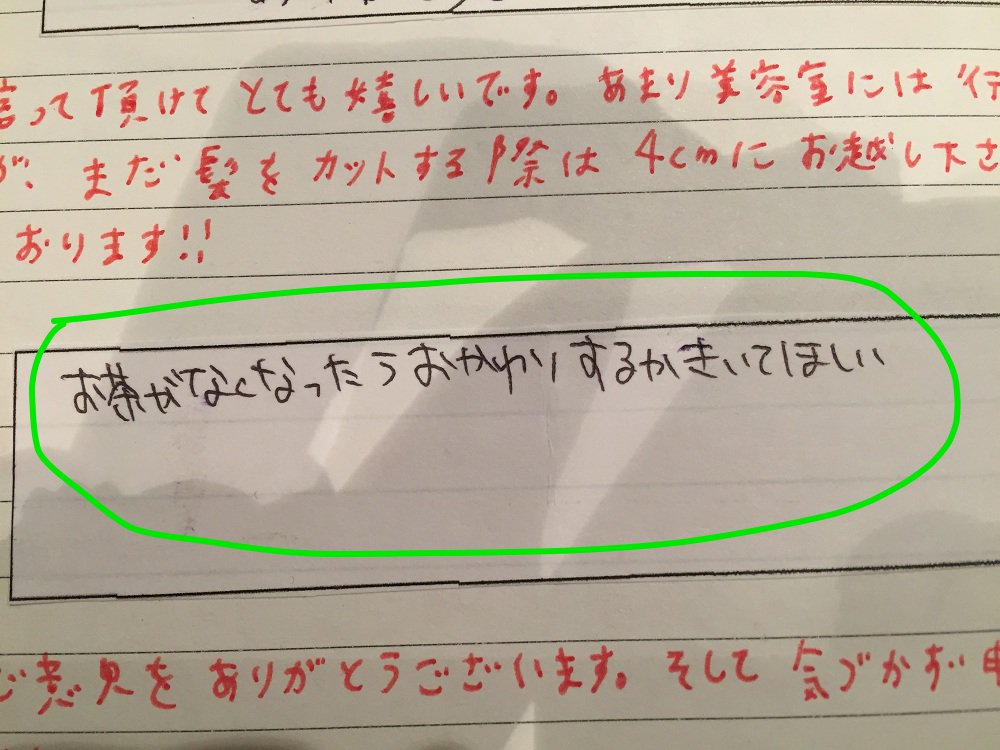 言って頂けて とても嬉しいです。あまり美容室には行
が、まだ髪をカットする際は 4cmに お越し下さ
おります!!
お茶がなくなったらおかわりするかきいてほしい
ご意見をありがとうございます。そして 気づかず申